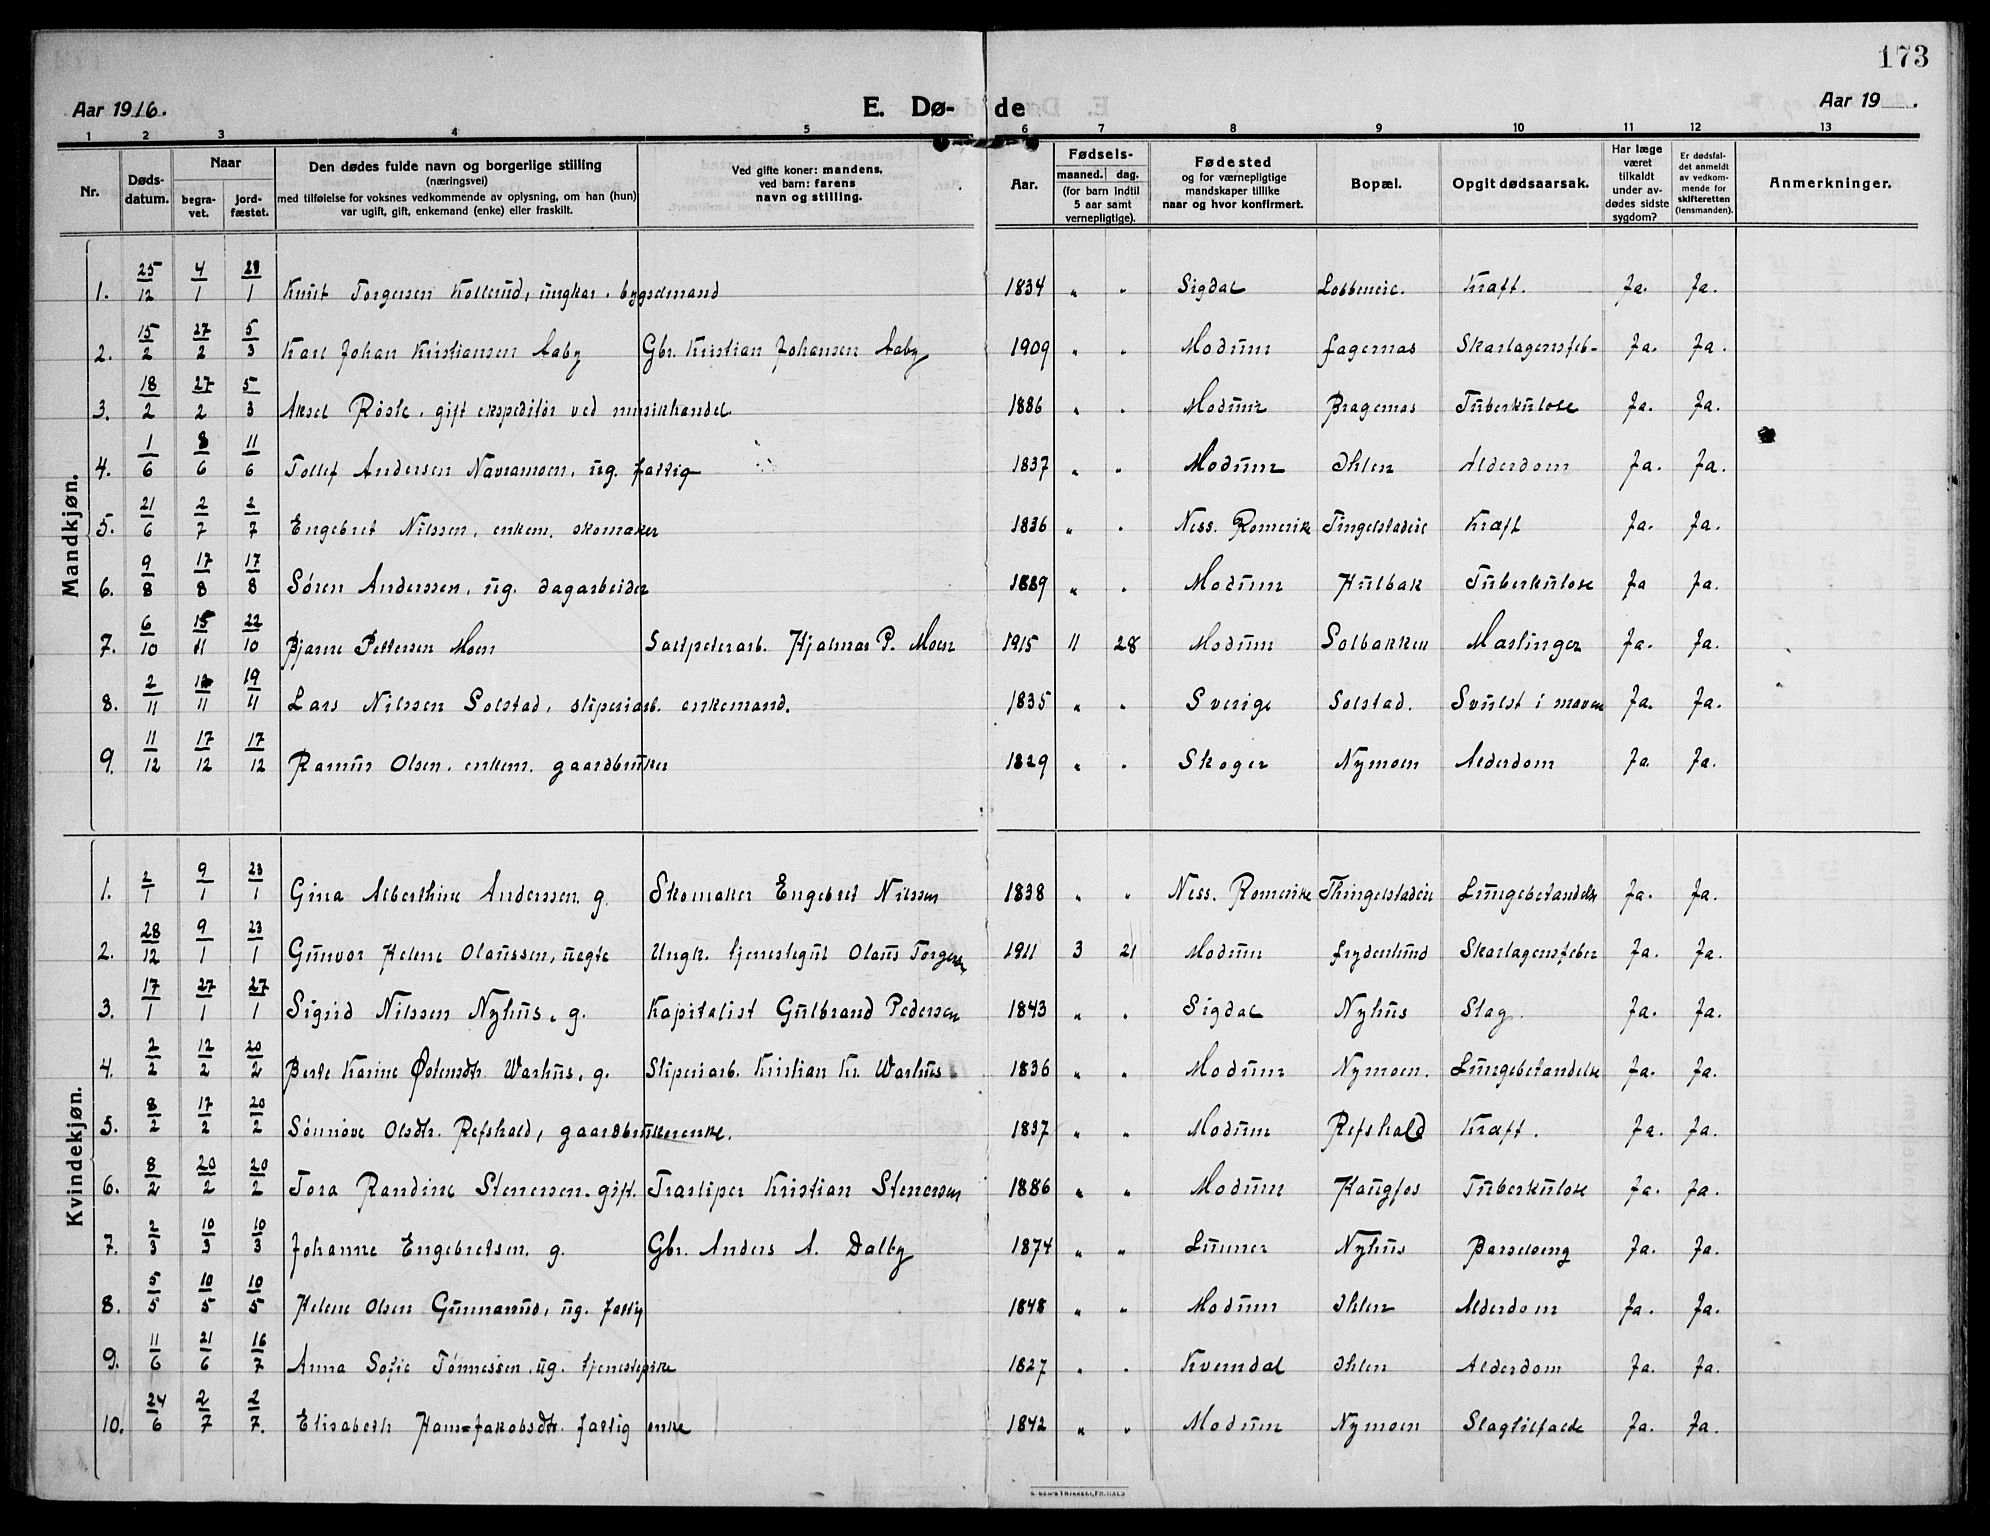 173
Aar 1916. E. Dø- de Aar 19 .
1 2 3 4 5 6 7 8 9 10 11 12 13
Nr. Døds-datum. Naar begra-vet. jord-fæstet. Den dødes fulde navn og borgerlige stilling (næringsvei) med tilføielse for voksnes vedkommende av oplysning, om han (hun) var ugift, gift, enkemand (enke) eller fraskilt. Ved gifte koner: mandens, ved barn: farens navn og stilling. Aar. Fødsels- maaned. dag. (for barn indtil 5 aar samt vernepligtige). Fødested og for værnepligtige mandskaper tillike naar og hvor konfirmert. Bopæl. Opgit dødsaarsak. Har læge været tilkaldt under av-dødes sidste sygdom? Er dødsfal-det anmeldt av vedkom-mende for skifteretten (lensmanden). Anmerkninger.
Mandkjøn.
1. 25/12 4/1 23/1 Knut Torgersen Kollerud, ungkar. bygdemand 1834 " " Sigdal Lobbeneie. Kræft. Ja. Ja.
2. 15/2 27/2 5/3 Karl Johan Kristiansen Aaby Gbr. Kristian Johansen Aaby 1909 " " Modum Fagernas Skarlagensfeb- Ja. Ja.
3. 18/2 27/2 5/3 Aksel Röste. gift ekspeditör ved musikhandel 1886 " " Modum Bragernes Tuberkulose Ja. Ja.
4. 1/6 8/6 11/6 Tollef Andersen Navramoen, ug. fattig 1837 " " Modum Ihlen Alderdom Ja. Ja.
5. 21/6 2/7 2/7 Engebret Nilssen, enkem. skomaker 1836 " " Ness. Romerike Tingelstadeie Kræft Ja. Ja.
6. 9/8 17/8 17/8 Sören Anderssen, ug. dagarbeider 1889 " " Modum Hulbak Tuberkulose Ja Ja.
7. 6/10 15/11 22/10 Bjarne Pettersen Moen Saltpeterarb. Hjalmar P. Moen 1915 11 28 Modum Solbakken Mæslinger Ja. Ja.
8. 2/11 12/11 19/11 Lars Nilssen Solstad, sliperiarb. enkemand. 1835 " " Sverige Solstad. Svulst i maven Ja. Ja.
9. 11/12 17/12 17/12 Ramus Olsen. enkem. gaardbruker 1829 " " Skoger Nymoen Alderdom Ja. Ja.
Kvindekjøn.
1. 2/1 9/1 23/1 Gina Alberthine Anderssen. g. Skomaker Engebret Nilssen 1838 " " Ness. Romerike Thingelstadeie Lungebetændelse Ja. Ja.
2. 28/12 9/1 23/1 Gunvor Helene Olaussen, uegte Ungk. tjenestegut Olaus Torgersen 1911 3 21 Modum Frydenlund Skarlagensfeber Ja. Ja.
3. 17/1 27/1 27/1 Sigrid Nilssen Nyhus, g. Kapitalist Gulbrand Pedersen 1843 " " Sigdal Nyhus Slag. Ja. Ja.
4. 2/2 12/2 20/2 Berte Karine Östensdtr. Warhus, g. Sliperiarb. Kristian Kr. Warhus. 1836 " " Modum Nymoen. Lungebetændelse Ja. Ja.
5. 8/2 17/2 20/2 Sönnöve Olsdtr. Refshald, gaardbrukerenke. 1837 " " Modum Refshald Kræft. Ja. Ja.
6. 8/2 20/2 20/2 Tora Randine Stenersen. gift. Træsliper Kristian Stenersen 1886 " " Modum Haugfos Tuberkulose Ja. Ja.
7. 2/3 10/3 10/3 Johanne Engebretsen. g. Gbr. Anders A. Dalby 1874 " " Lunner Nyhus Barselseng Ja. Ja.
8. 5/5 10/5 10/5 Helene Olsen Gunnarud, ug. fattig 1848 " " Modum Ihlen Alderdom Ja. Ja.
9. 11/6 21/6 16/7 Anna Sofie Tönnessen, ug. tjenestepike 1827 " " Kvemdal Ihlen Alderdom Ja. Ja.
10. 24/6 2/7 2/7. Elisabeth Hans=Jakobsdtr. fattig enke 1842 " " Modum Nymoen Slagtilfælde Ja. Ja.